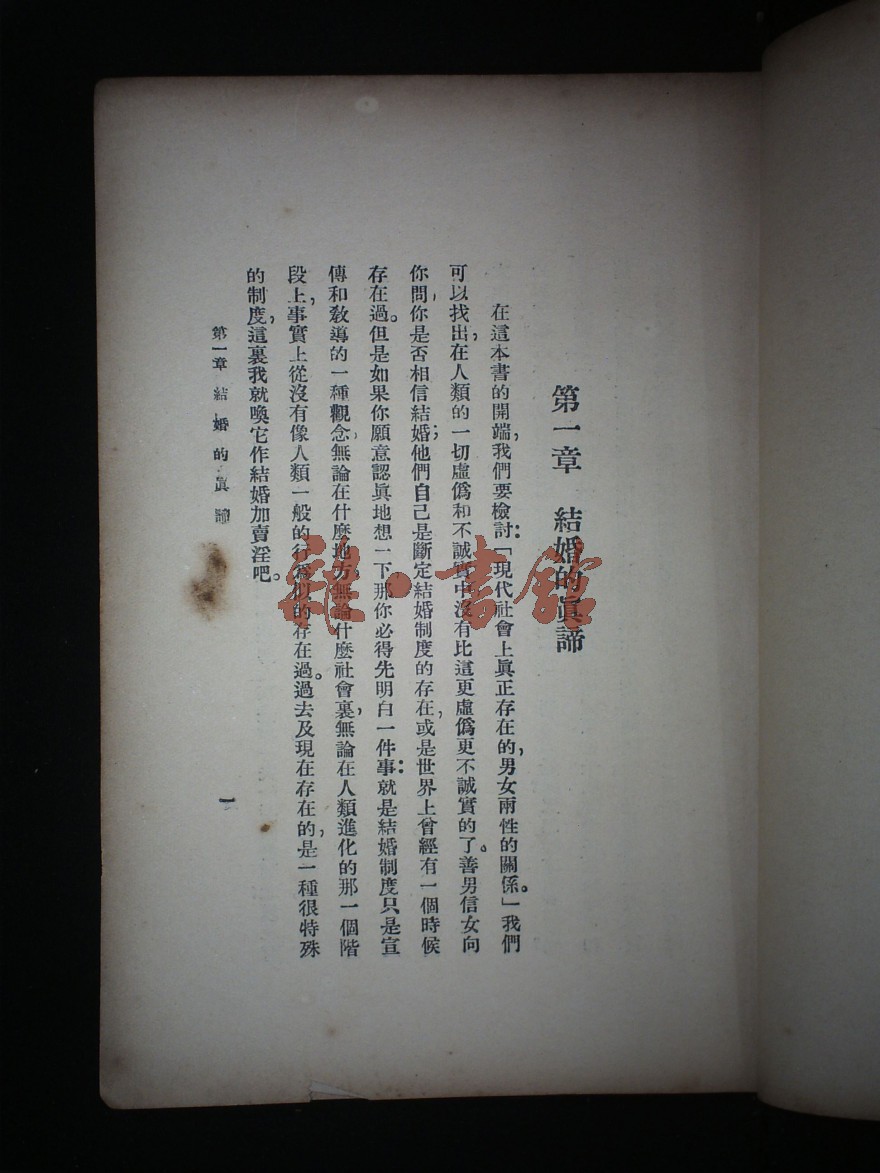 第一章　結婚的眞諦
在這本書的開端，我們要檢討：「現代社會上眞正存在的，男女兩性的關係。」我們
可以找出，在人類的一切虛僞和不誠實中沒有比這更虛僞更不誠實的了。善男信女向
你問，你是否相信結婚；他們自己是斷定結婚制度的存在，或是世界上曾經有一個時候
存在過。但是如果你願意認眞地想一下，那你必得先明白一件事：就是結婚制度只是宣
傳和敎導的一種觀念，無論在什麼地方，無論什麼社會裏，無論在人類進化的那一個階
段上，事實上從沒有像人類一般的行爲似的存在過。過去及現在存在的，是一種很特殊
的制度，這裏我就喚它作結婚加賣淫吧。
第一章　結婚的眞諦
一
雜·書館